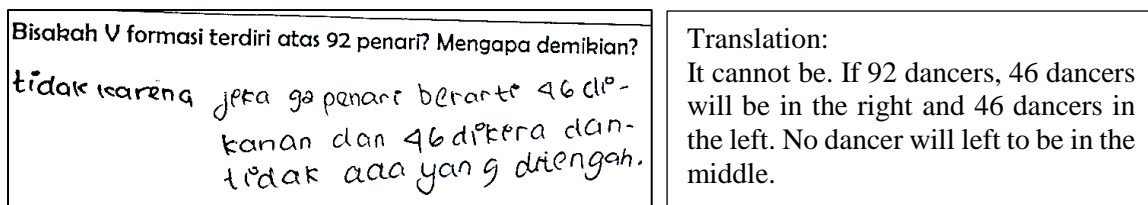 Bisakah V formasi terdiri atas 92 penari? Mengapa demikian?
tidak karena jika 92 penari berarti 46 di-
kanan dan 46 dikira dan-
tidak ada yang ditengah.
Translation:
It cannot be. If 92 dancers, 46 dancers
will be in the right and 46 dancers in
the left. No dancer will left to be in the
middle.